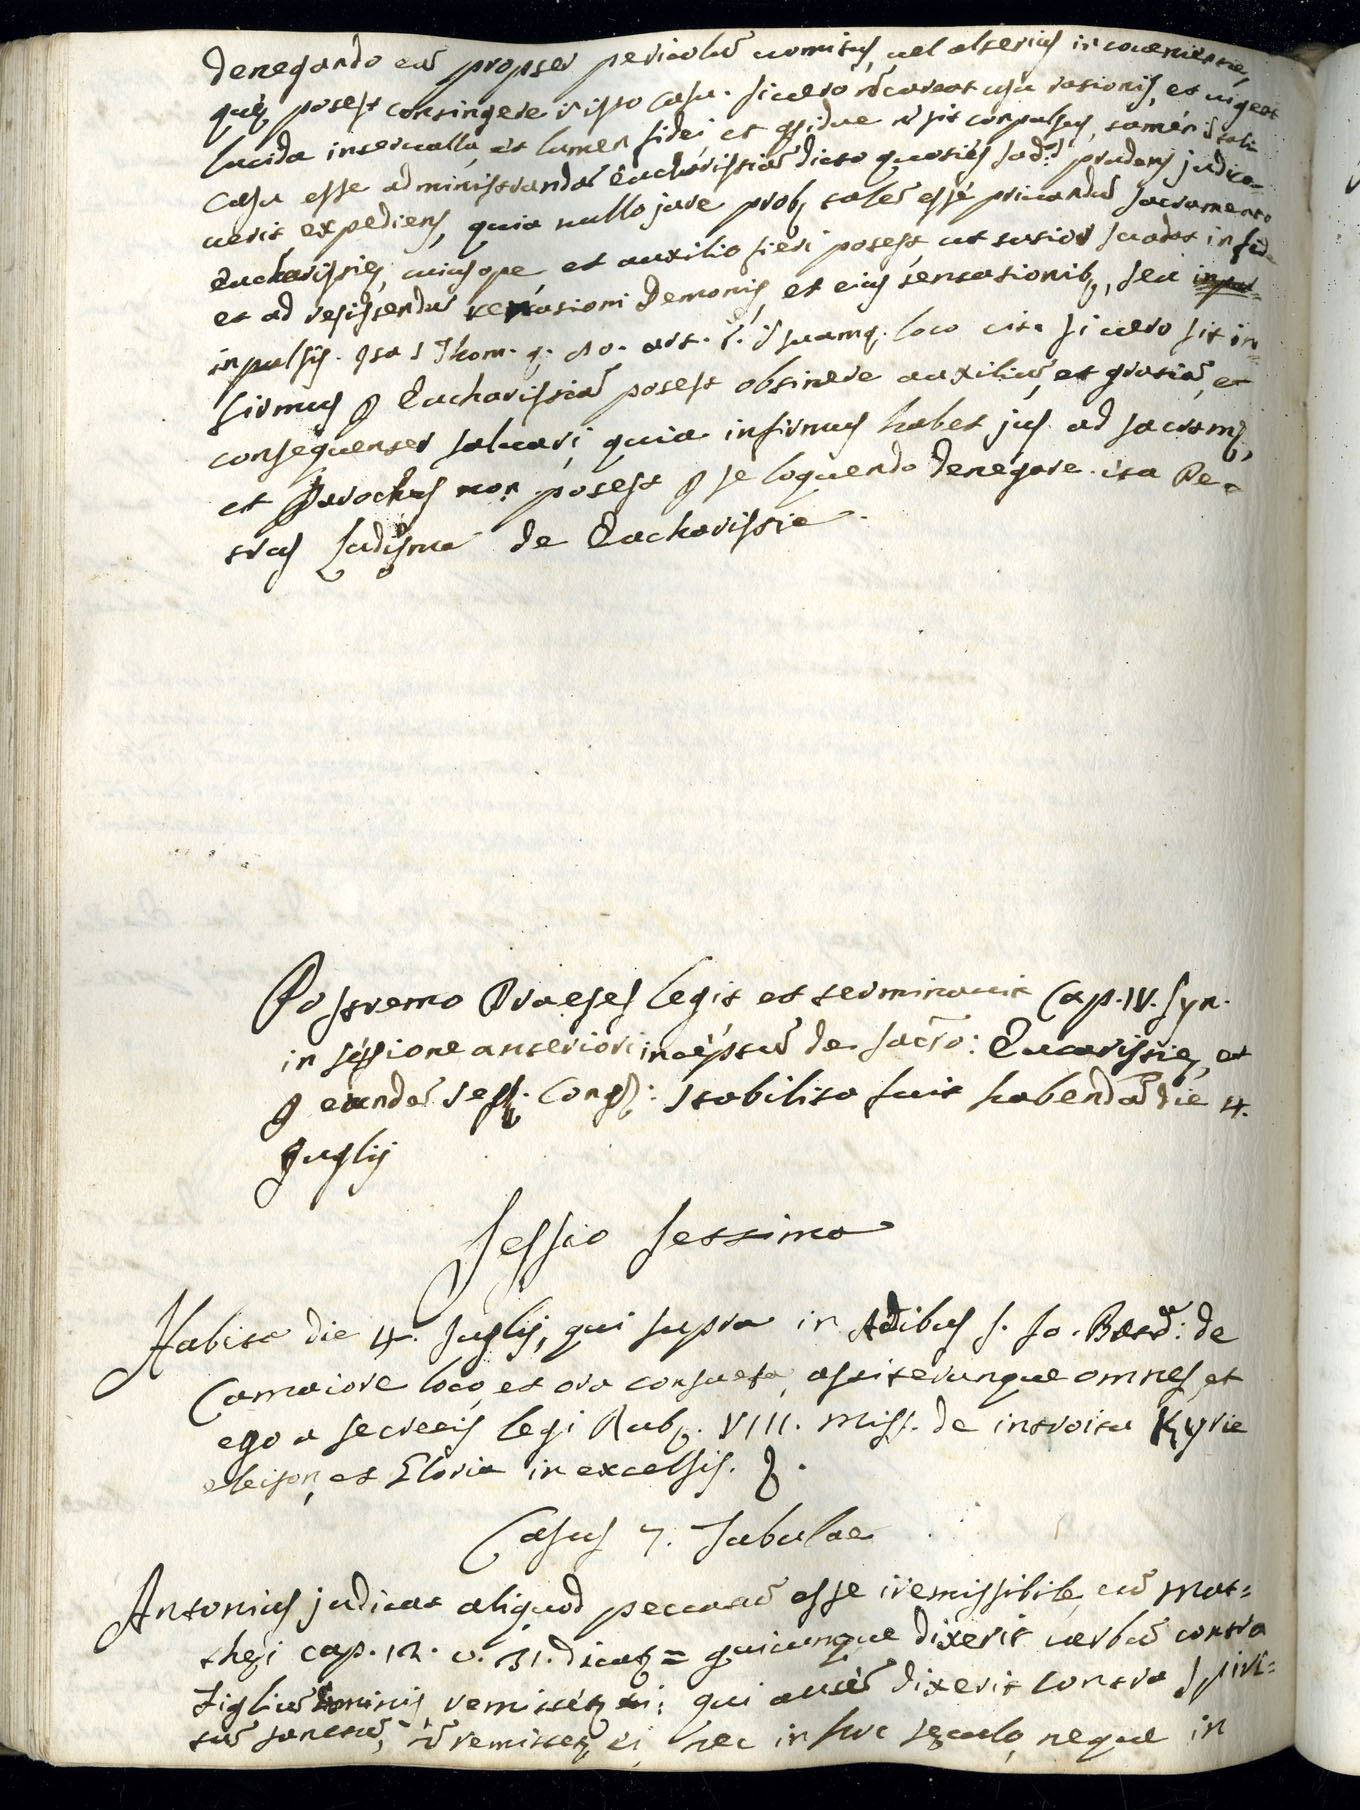 denegando eū propter pericolū vomitus, vel alterius inconvenientie,
que potest contingere ī isto casu. si vero nō careat usu rationis, et vigeat
lucida intervalla, et lumen fidei et sit conpulsus, tamen ī tali
casu esse administrandā Eucharistiā dicto quoties prudens judica-
verit expediens, quia nullo jure prob; talē esse privandū sacramento
Eucharistie, cuius ope et auxilio fieri potest ut tutior in fide
et ad resistendū tentasioni Demonis, et eius tentationib;, seu
inpulsis. Ita S Thom. q. 80. art. loco cit. si vero sit in-
firmus p Eucharistiā potest obtinere auxiliū, et gratiā, et
consequenter salvari, quia infirmus habet jus ad sacram;,
et Parochus non potest p se loquendo denegare. ita Pe-
trus de Eucharistia.
Postremo Praeses legit et terminavit Cap. IV. Syn.
in sessione anteriori inceptū de Sacrō: Eucaristie, et
p eandē Sess. Cong: stabilita fuit habendā die 4.
Juglij
Sessio Settima
Habita die 4. Juglij, qui supra in Ædibus S. Jo. Bard: de
Camaiore loco, et ora consueta, assiterunque omnes, et
ego a secretis legi Rub;. VIII. Miss. de introitu Kyrie
eleison, et Gloria in excelsis. &.
Casus 7. Tabulae
Antonius judicat aliquod peccatū esse irremissibile, cū Mat=
thei cap. 12. v. 31. dicat; = quicunque dixerit verbū contra
Figliū hominis, remittet; ei: qui autē dixerit contra Spiri=
tū sanctū, nō remittet; ei, nec in huc seculo, neque in